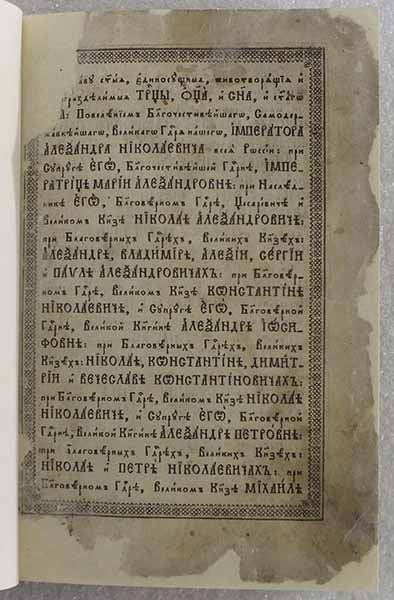 аву ст҃ыѧ, є҆диносꙋ́щныѧ, животворѧ́щїѧ и҆
раздѣ́лимыѧ ТРЦ҃Ы, Ѻ҆Ц҃А̀, и҆ СН҃А, и҆ ст҃а́гѡ
А: Повелѣ́нїемъ Бл҃гочести́вѣйшагѡ, Самодер-
жа́внѣйшагѡ, Вели́кагѡ Гдⷭ҇рѧ на́шегѡ, ІМПЕРА́ТОРА
АЛЕѮА́НДРА НІКОЛА́ЕВИЧА всеѧ̀ Рѡссі́и: при
Сꙋпрꙋ́гѣ Є҆ГѠ̀, Бл҃гочести́вѣйшей Гдⷭ҇рнѣ, ІМПЕ-
РАТРІ́ЦѢ МАРІ́И АЛЕѮА́НДРОВНѢ: при Наслѣ́д-
никѣ Є҆ГѠ̀, Бл҃говѣ́рномъ Гдⷭ҇рѣ, Цесаре́вичѣ и҆
Вели́комъ Кн҃зѣ НІКОЛА́Ѣ АЛЕѮА́НДРОВИЧѢ:
при Бл҃говѣ́рныхъ Гдⷭ҇рѣхъ, Вели́кихъ Кн҃зѣхъ:
АЛЕѮА́НДРѢ, ВЛАДИ́МІРѢ, АЛЕѮІ́И, СЕ́РГІИ
и҆ ПА́ѴЛѢ АЛЕѮА́НДРОВИЧАХЪ: при Бл҃говѣ́р-
номъ Гдⷭ҇рѣ, Вели́комъ Кн҃зѣ КѠНСТАНТІ́НѢ
НІКОЛА́ЕВИЧѢ, и҆ Сꙋпрꙋ́гѣ Є҆ГѠ̀, Бл҃говѣ́рной
Гдⷭ҇рнѣ, Вели́кой Кн҃ги́нѣ АЛЕѮА́НДРѢ І҆ѠСИ-
ФОВНѢ: при Бл҃говѣ́рныхъ Гдⷭ҇рѣхъ, Вели́кихъ
Кн҃зѣхъ: НІКОЛА́Ѣ, КѠНСТАНТІ́НѢ, ДИМИ́Т-
РІИ и҆ ВЕЧЕСЛА́ВѢ КѠНСТАНТІ́НОВИЧАХЪ:
при Бл҃говѣ́рномъ Гдⷭ҇рѣ, Вели́комъ Кн҃зѣ НІКОЛА́Ѣ
НІКОЛА́ЕВИЧѢ, и҆ Сꙋпрꙋ́гѣ Є҆ГѠ̀, Бл҃говѣ́рной
Гдⷭ҇рнѣ, Вели́кой Кн҃ги́нѣ АЛЕѮА́НДРѢ ПЕТРО́ВНѢ:
при Бл҃говѣ́рныхъ Гдⷭ҇рѣхъ, Вели́кихъ Кн҃зѣхъ:
НІКОЛА́Ѣ и҆ ПЕТРѢ̀ НІКОЛА́ЕВИЧАХЪ: при
Бл҃говѣ́рномъ Гдⷭ҇рѣ, Вели́комъ Кн҃зѣ МІХАИ́ЛѢ